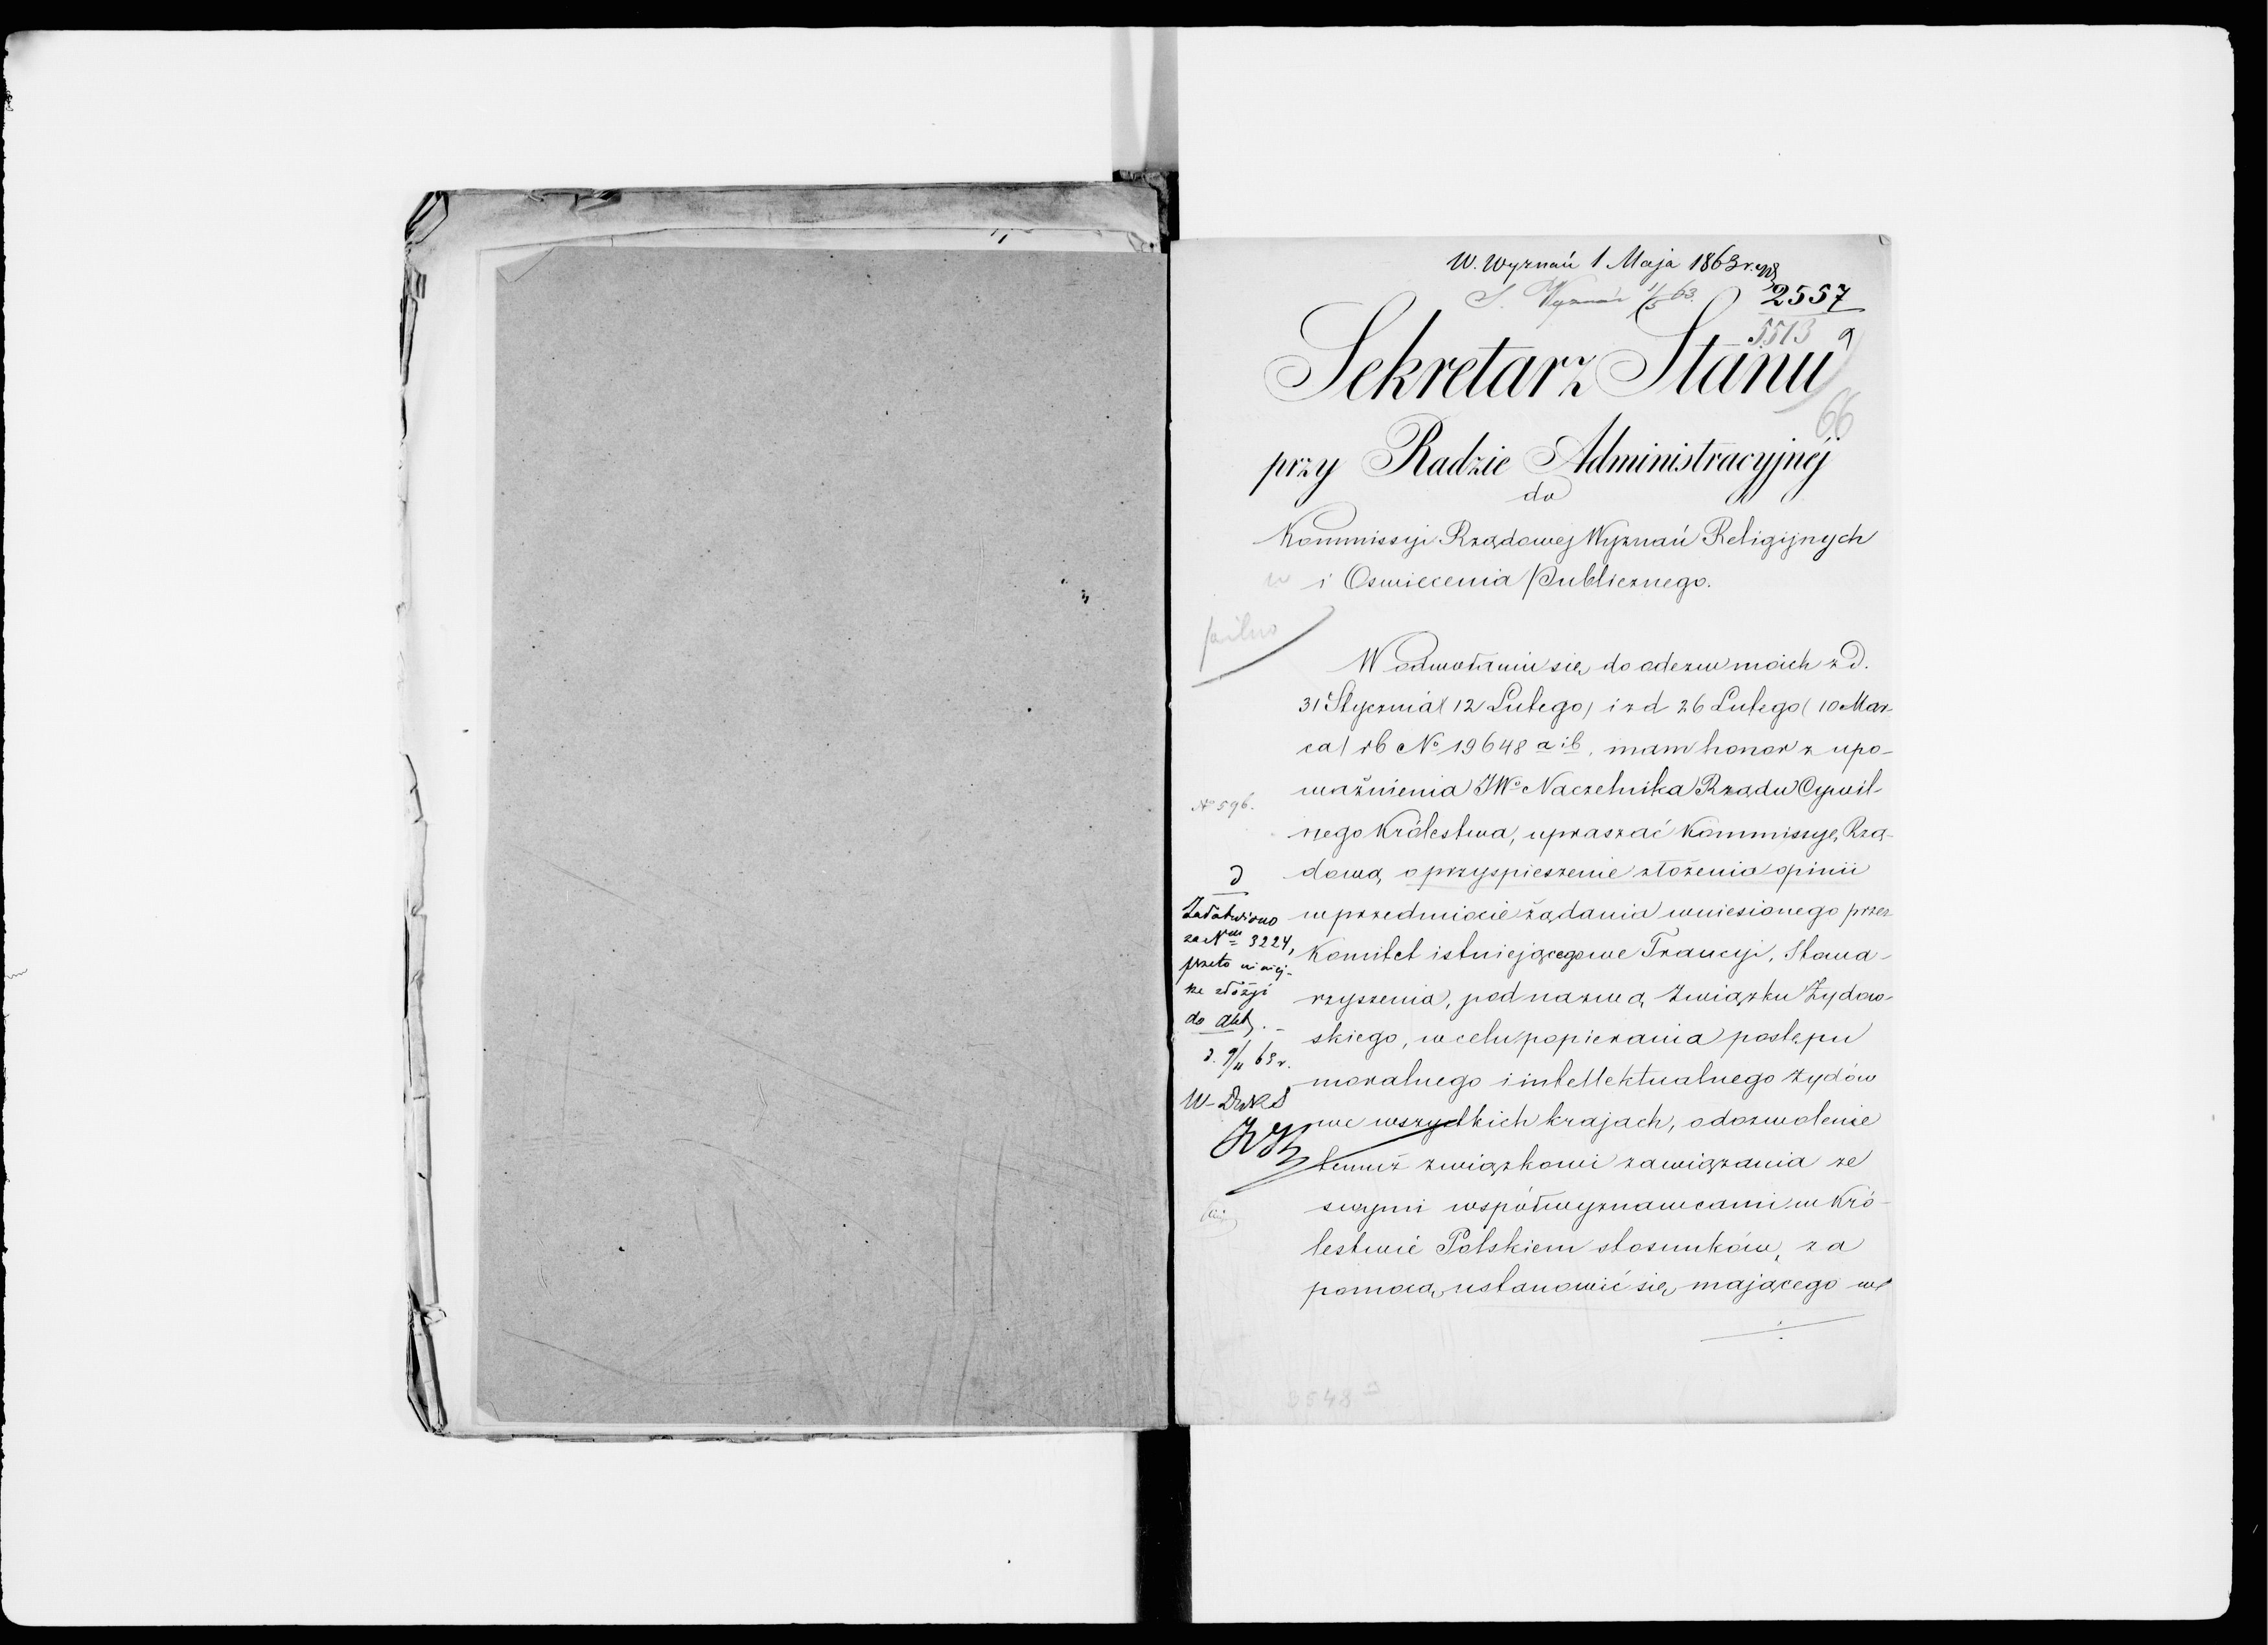 W. Wyznań 1 Maja 1863 r.
S. Wyznań 1/5 63.
2557
5513
Sekretarz Stanu
66
przy Radzie Administracyjnéj
do
Kommissyi Rządowej Wyznań Religijnych
i Oswiecenia Publicznego.
pilno
W odwołaniu się do odezw moich z d.
31 Stycznia (12 Lutego) i z d 26 Lutego (10 Mar-
ca) rb No 19648 a i b, mam honor z upo-
ważnienia JWo Naczelnika Rządu Cywil-
No 596.
nego Królestwa, upraszać Kommissyę Rzą-
dową o przyspieszenie złożenia opinii
w przedmiocie żądania wniesionego przez
Komitet istniejącego we Francyi, Stowa-
rzyszenia, pod nazwą Związku Żydow-
skiego, w celu popierania postępu
moralnego i intellektualnego żydów
we wszystkich krajach, o dozwolenie
temuż związkowi zawiązania ze
swymi współwyznawcami w Kró-
lestwie Polskiem stosunków, za
pomocą ustanowić się mającego we
D
Załatwiono
za Nm 3224,
przeto niniej-
sze złożyć
do akt. -
d. 9/11 63 r.
3548